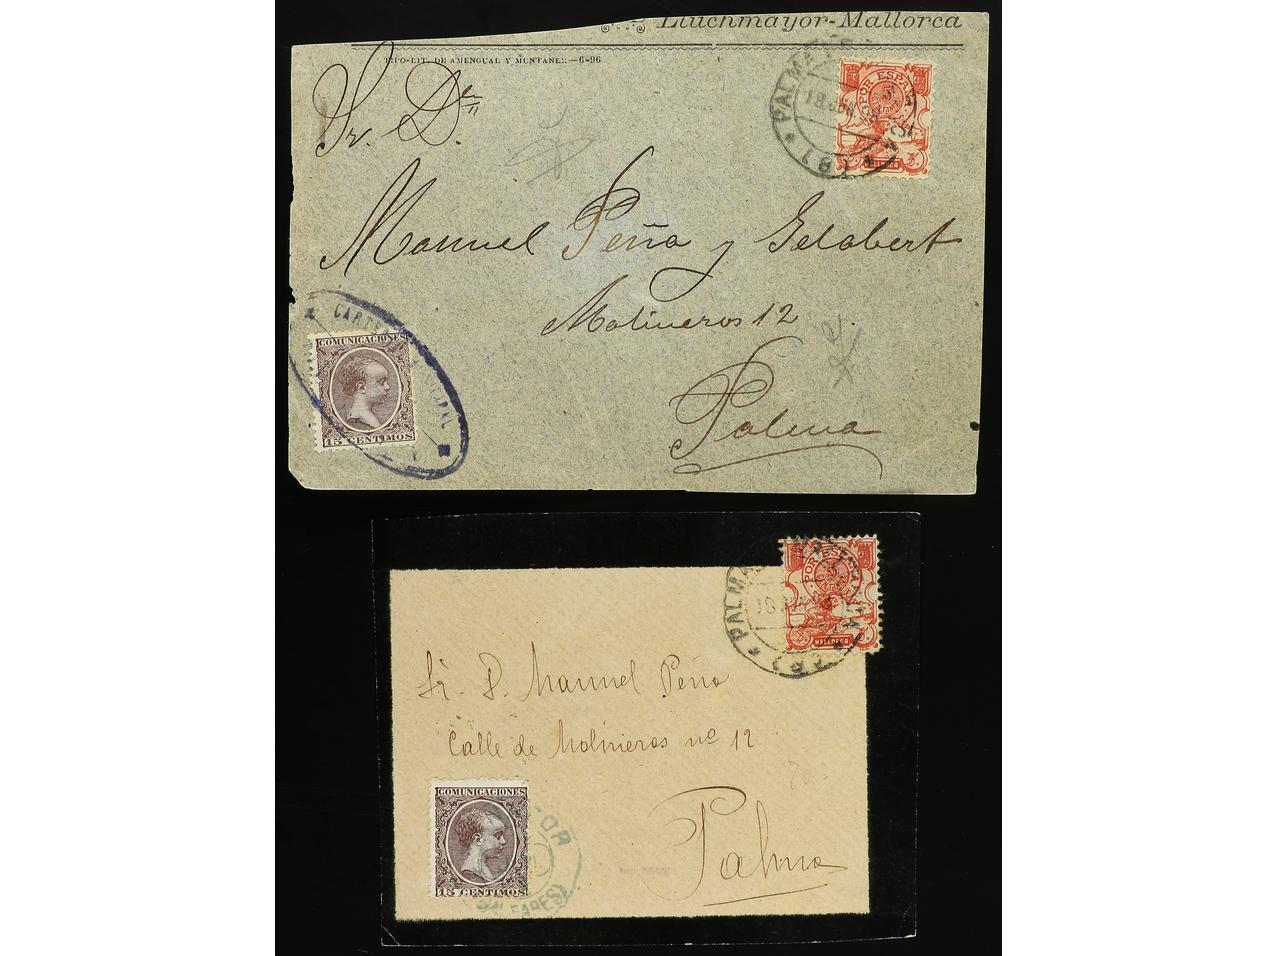 Lluchmayor-Mallorca
TIPO-LIT. DE AMENGUAL Y MUNTANER.—6-96
PALMA
18
POR ESPAÑA
5
MALLORCA
Sr. Dn
Manuel Peña y Gelabert
Molineros 12
Palma
COMUNICACIONES
15 CENTIMOS
PALMA
18
POR ESPAÑA
5
MALLORCA
Sr. D. Manuel Peña
Calle de Molineros nº 12
Palma
COMUNICACIONES
15 CENTIMOS